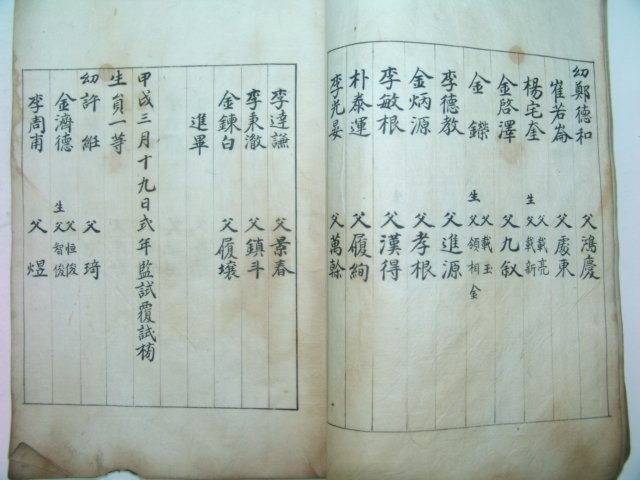 幼鄭德和 父鴻慶
崔若崙 父處東
楊宅奎 父載亮 生父載新
金啓澤 父九敘
金鑅 父載玉 生父領相金
李德教 父進源
金炳源 父孝根
李敏根 父漢得
朴泰運 父履絢
李光晏 父萬榦
李達謙 父景春
李東澈 父鎮斗
金鍊白 父履壤
進畢
甲戌三月十九日式年監試覆試榜
生員一等
幼許 父琦
金濟德 父恒俊 生父智俊
李周甫 父煜